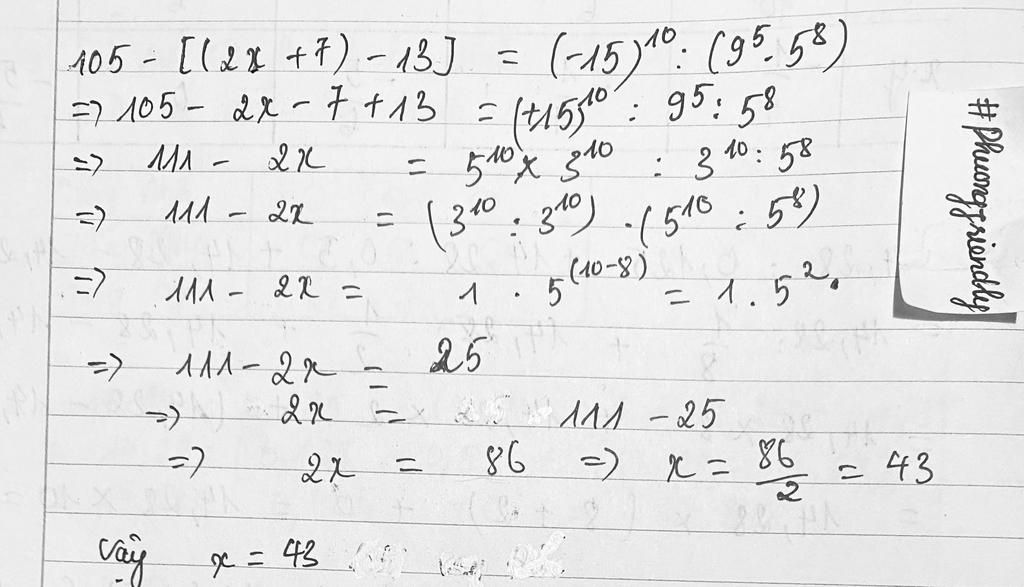 105 - [(2x + 7) - 13] = (-15)^10 : (9^5 . 5^8)
=> 105 - 2x - 7 + 13 = (+15)^10 : 9^5 : 5^8
=> 111 - 2x = 5^10 x 3^10 : 3^10 : 5^8
=> 111 - 2x = (3^10 : 3^10) . (5^10 : 5^8)
=> 111 - 2x = 1 . 5^(10-8) = 1 . 5^2.
=> 111 - 2x = 25
=> 2x = 111 - 25
=> 2x = 86 => x = 86/2 = 43
Vậy x = 43